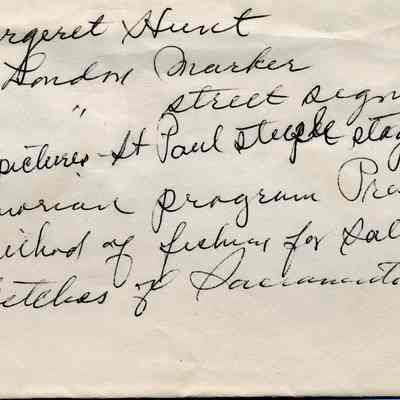 rgeret Hunt
London Marker
" street sign
pictures - St Paul steeple stag
orian program Pre
ethod of fishing for Sal
etches of Sacramento